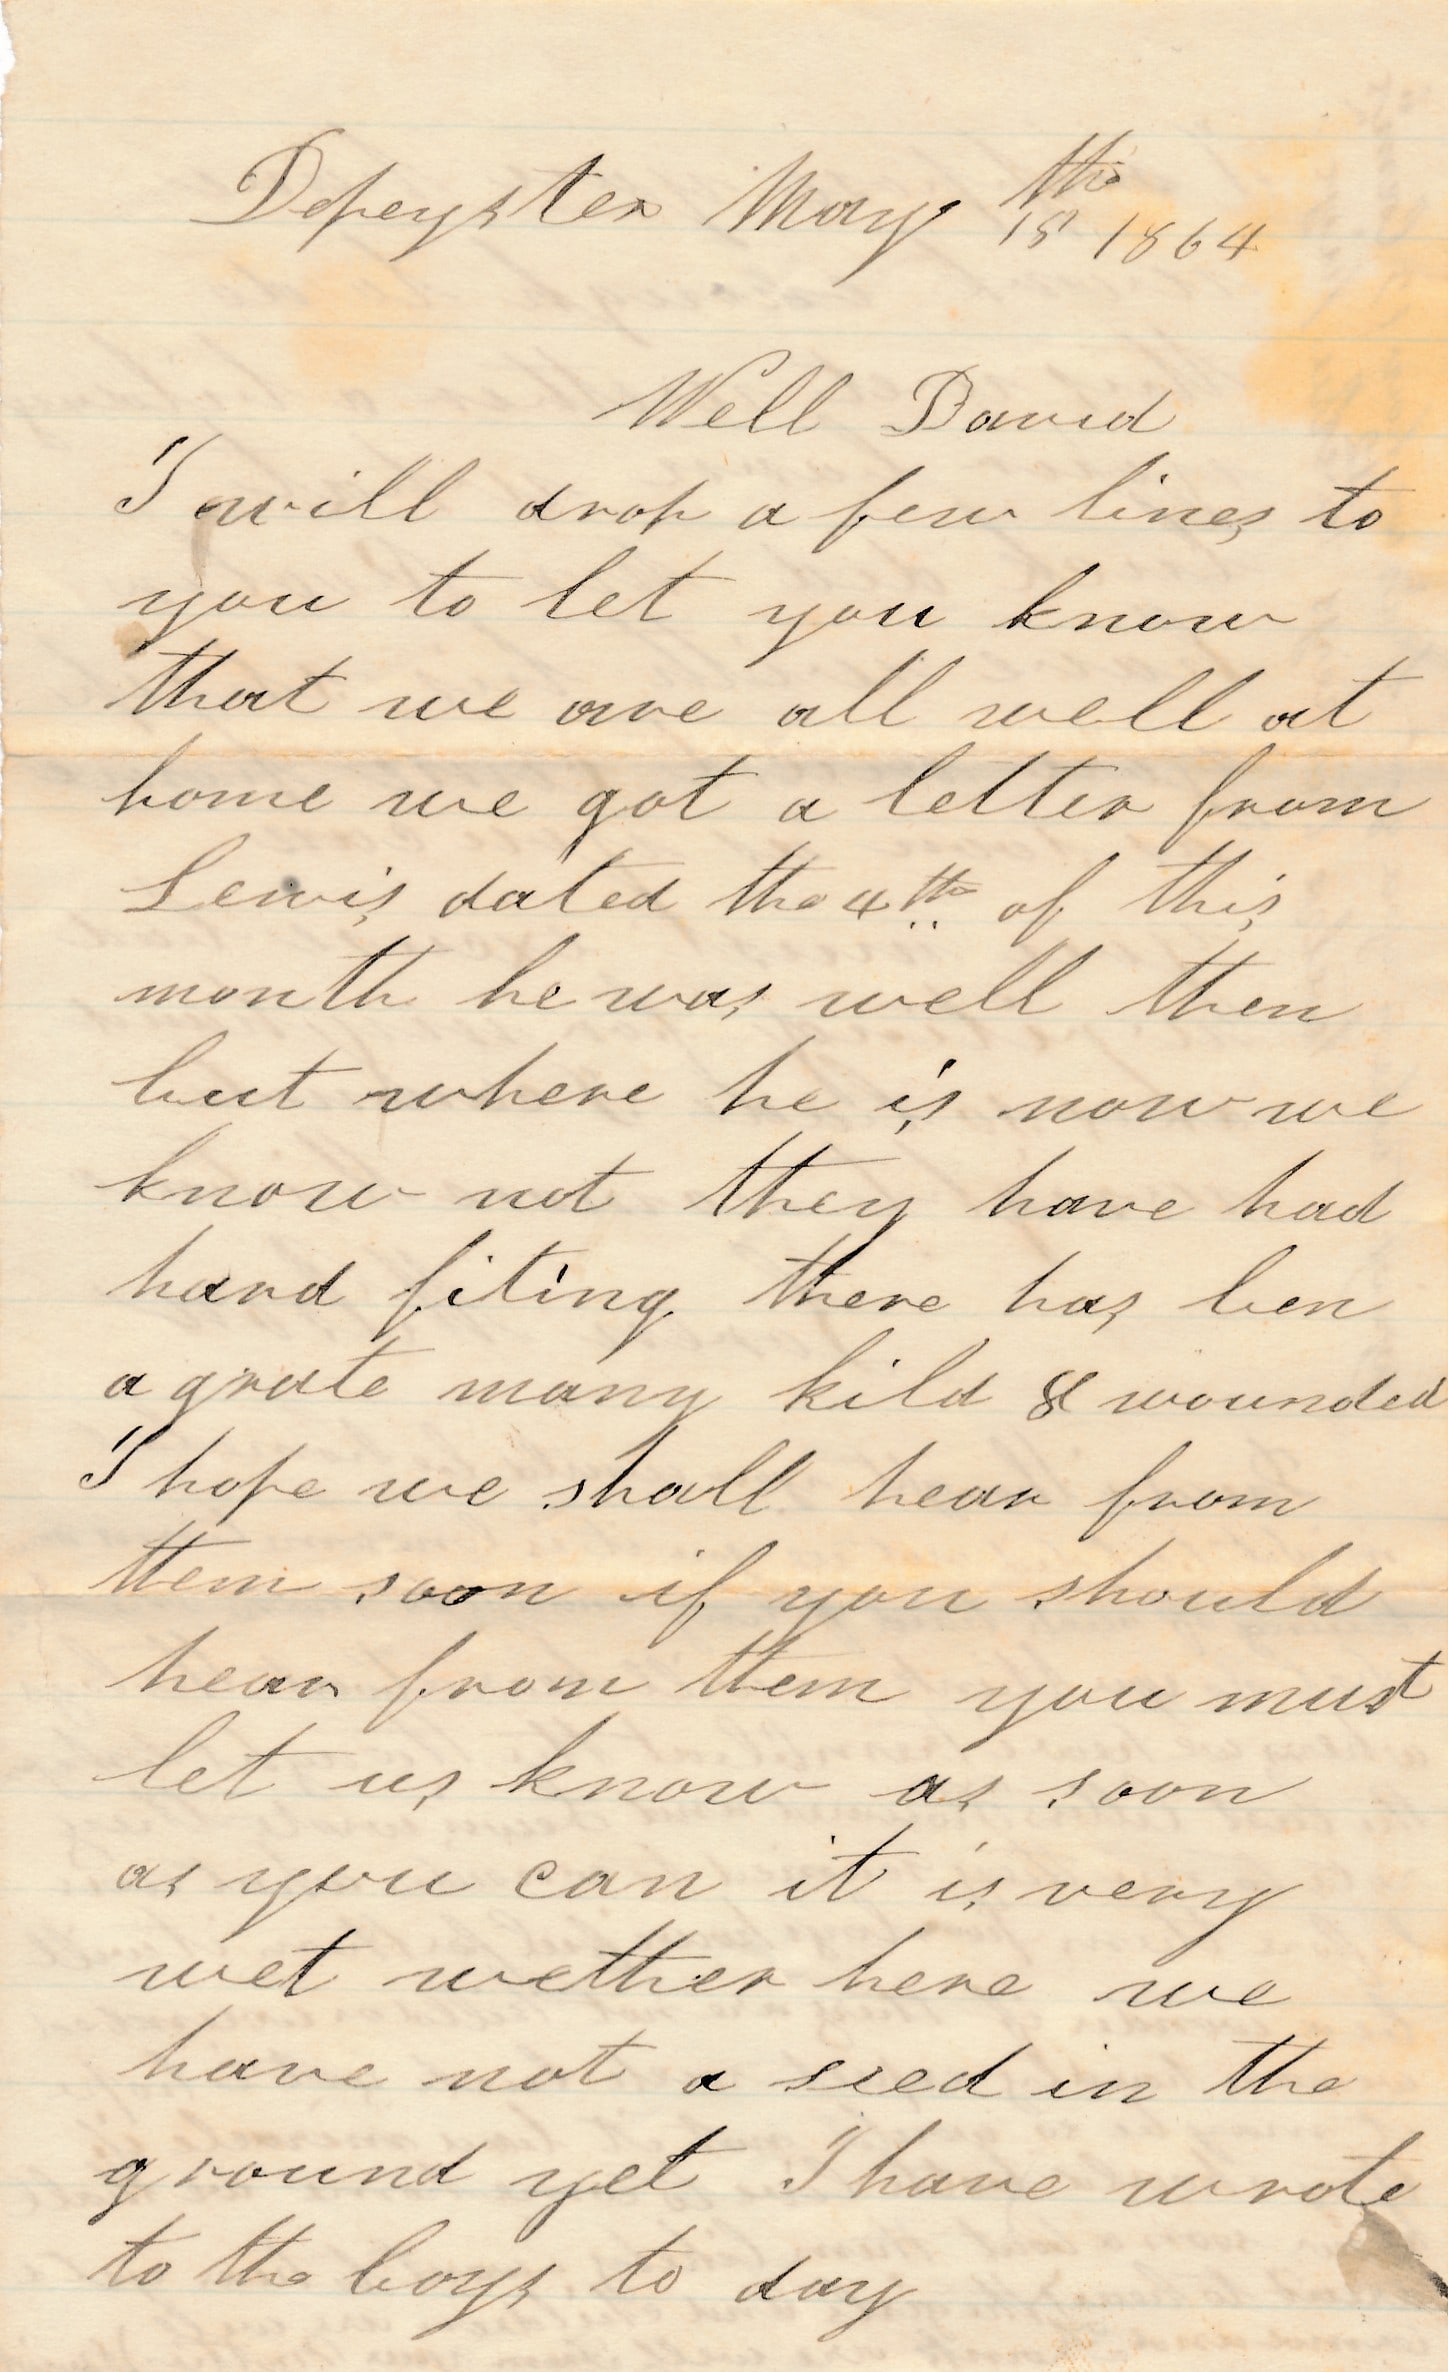 Depeyster May 18th 1864
Well David
I will drop a few lines to
you to let you know
that we are all well at
home we got a letter from
Lewis dated the 4th of this
month he was well then
but where he is now we
know not they have had
hard fiting there has ben
a grate many kild & wounded
I hope we shall hear from
them soon if you should
hear from them you must
let us know as soon
as you can it is very
wet wether here we
have not a seed in the
ground yet I have wrote
to the boys to day